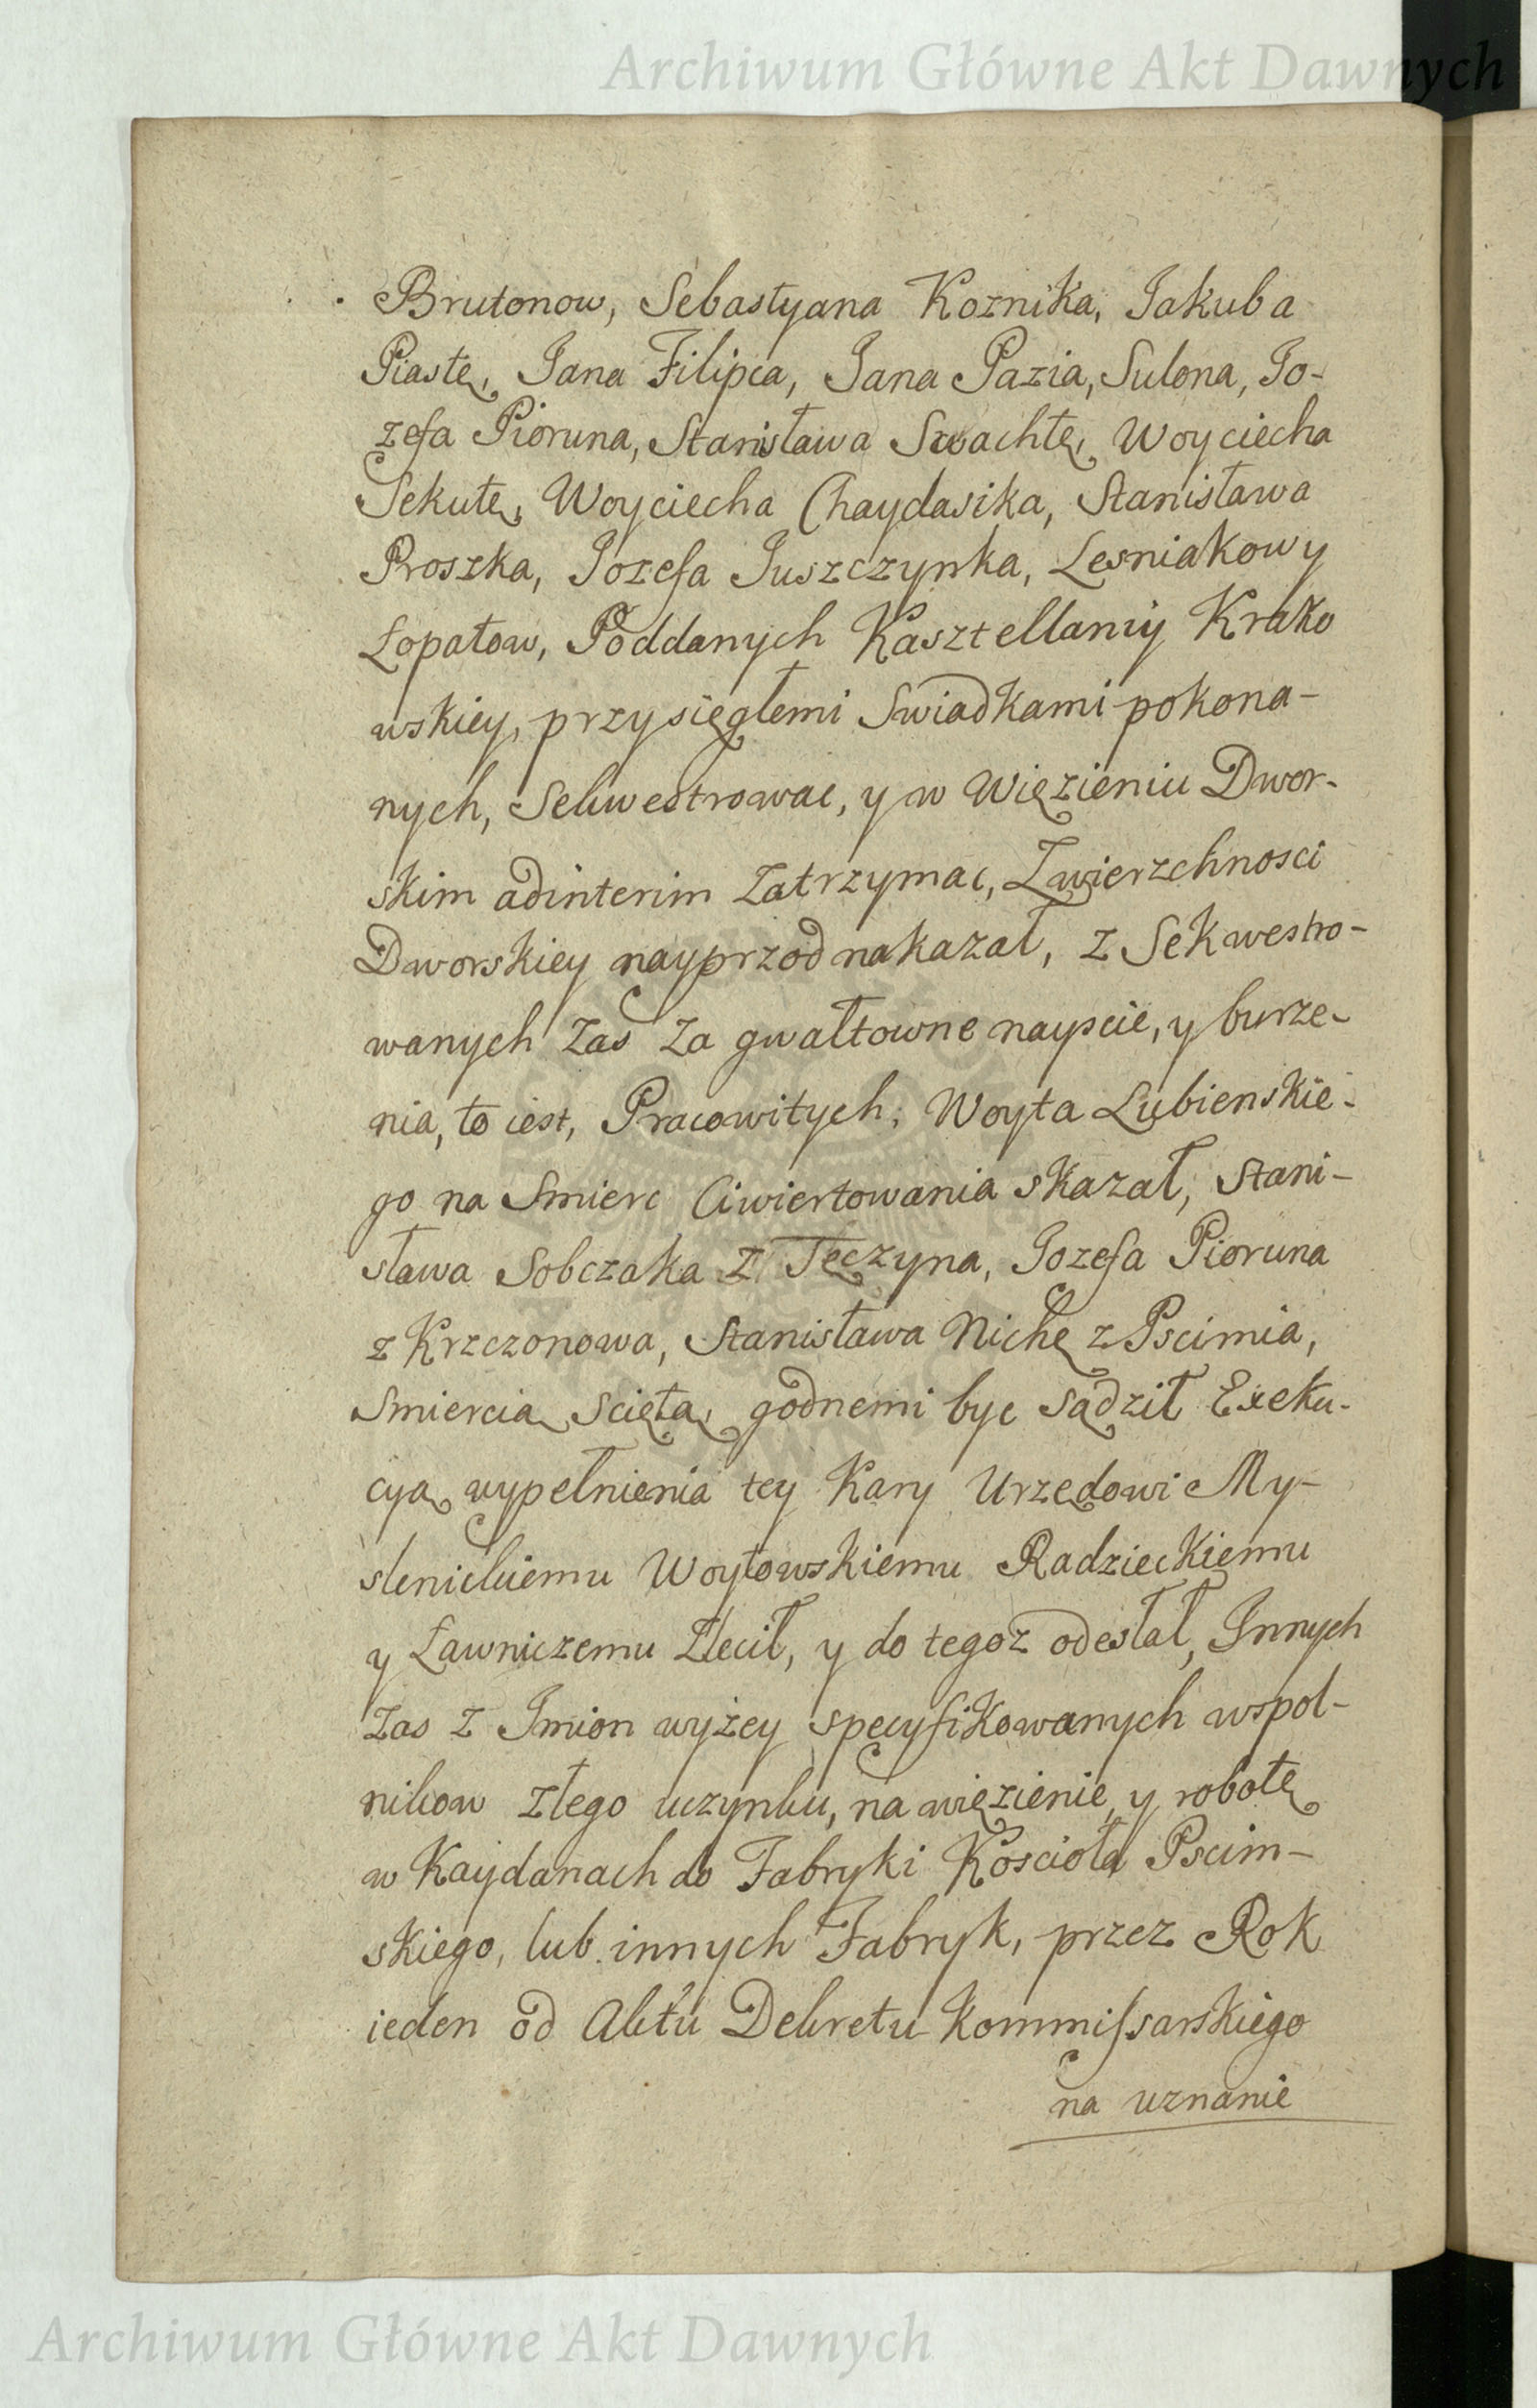 Archiwum Główne Akt Dawnych
Brutonow, Sebastyana Koznika, Jakuba
Piastę, Jana Filipca, Jana Pazia, Sulona, Jo-
zefa Pioruna, Stanisława Swachtę, Woyciecha
Sekutę, Woyciecha Chaydasika, Stanisława
Proszka, Jozefa Juszczynka, Lesniakowy
Łopatow, Poddanych Kasztellaniy Krako
wskiey, przysięgłemi Swiadkami pokona-
nych, Sekwestrowac, y w Więzieniu Dwor-
skim adinterim Zatrzymac, Zwierzchnosci
Dworskiey nayprzod nakazał, z Sekwestro-
wanych Zas Za gwałtowne nayscie, y burze-
nia, to iest, Pracowitych, Woyta Lubienskie-
go na Smierc Cwiertowania skazał, Stani-
sława Sobczaka z Tęczyna, Jozefa Pioruna
z Krzczonowa, Stanisława Nichę z Pscimia,
Smiercią Sciętą, godnemi byc sądził Exeku-
cyą wypełnienia tey Kary Urzędowi My-
slenickiemu Woytowskiemu Radzieckiemu
y Ławniczemu Zlecił, y do tegoz odesłał, Innych
Zas z Imion wyżey specyfikowanych wspol-
nikow złego uczynku, na więzienie y robotę
w Kaydanach do Fabryki Koscioła Pscim-
skiego, lub innych Fabryk, przez Rok
ieden od Aktu Dekretu Kommissarskiego
na uznanie
Archiwum Główne Akt Dawnych